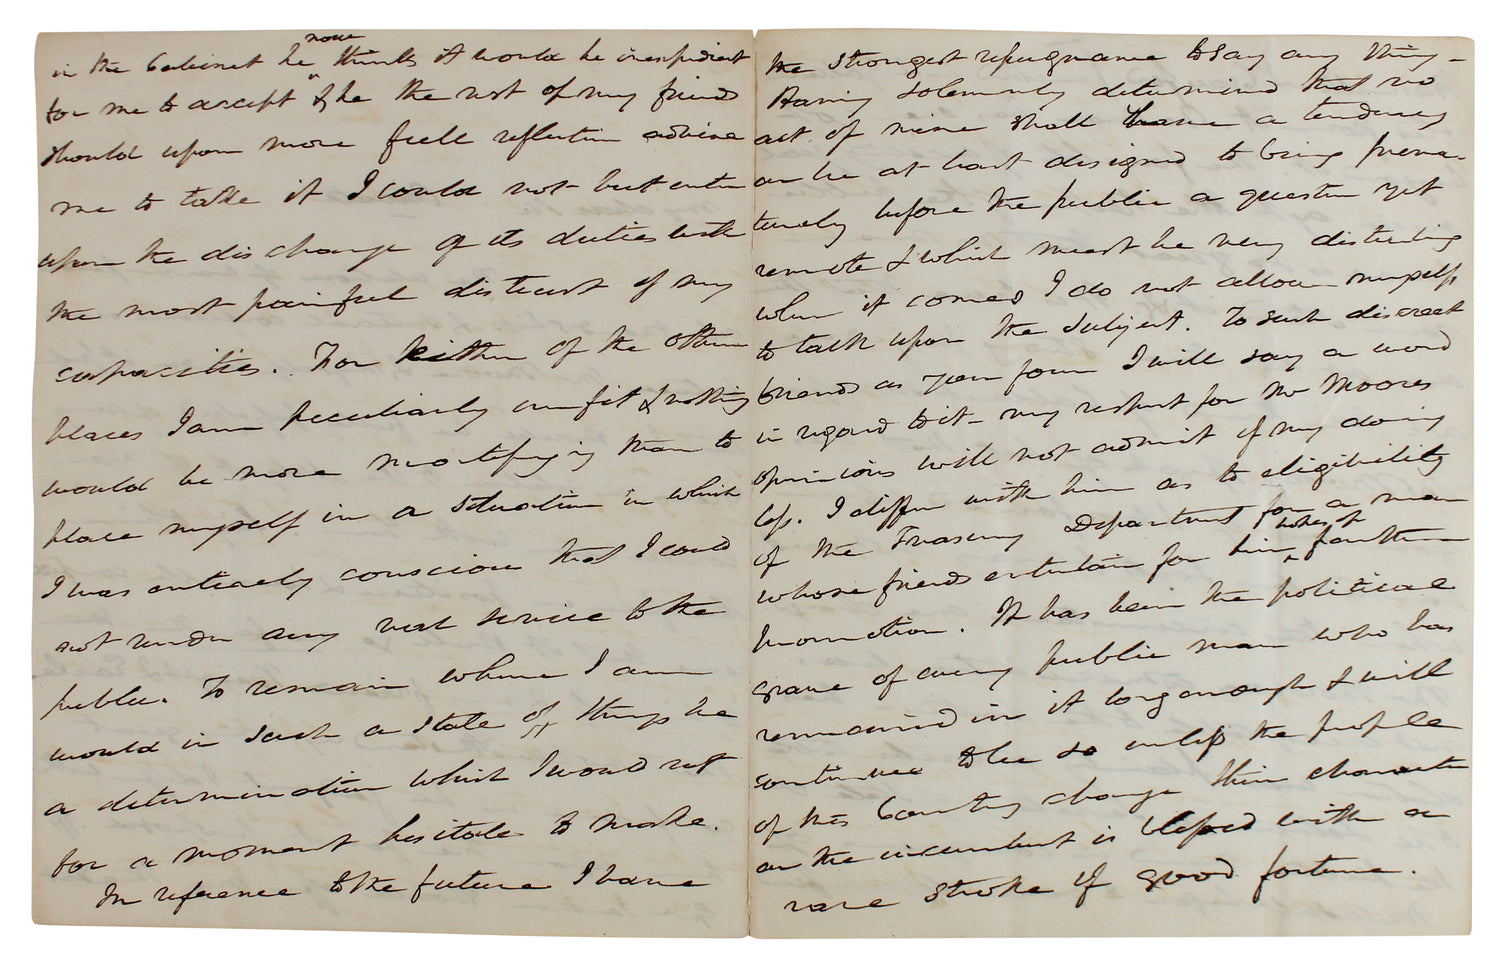 none
in the Cabinet he thinks it would be inexpedient
for me to accept & he the rest of my friends
should upon more full reflection advise
me to take it I could not but enter
upon the discharge of its duties with
the most painful distrust of my
capacities. For either of the other
places I am peculiarly unfit & nothing
would be more mortifying than to
place myself in a situation in which
I was entirely conscious that I could
not render any real service to the
public. To remain where I am
would in such a state of things be
a determination which I would not
for a moment hesitate to make.
In reference to the future I have
the strongest repugnance to say any thing -
Having solemnly determined that no
act of mine shall have a tendency
or be at least designed to bring prema-
turely before the public a question yet
remote & which must be very disturbing
when it comes I do not allow myself
to talk upon the subject. To such discreet
friends as your I will say a word
in regard to it - my respect for Mr Moores
opinions will not admit of my doing
less. I differ with him as to eligibility
of the Treasury Department for a man
hopes of
whose friends entertain for him farther
promotion. It has been the political
grave of every public man who has
remained in it long enough & will
continue to be so unless the people
of this Country change their character
or the incumbent is blessed with a
rare stroke of good fortune.